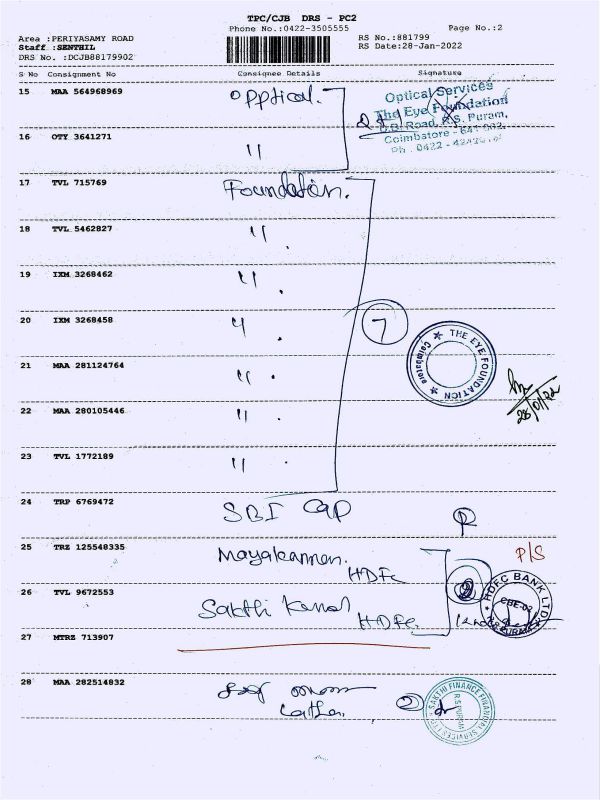 TPC/CJB DRS - PC2
Phone No.:0422-3505555
Page No.:2
Area :PERIYASAMY ROAD
RS No.:881799
Staff :SENTHIL
RS Date:28-Jan-2022
DRS No. :DCJB88179902
S No Consignment No Consignee Details Signature
15 MAA 564968969 Opptical.
Optical Services
The Eye Foundation
D.B. Road, R.S. Puram,
Coimbatore - 641 002.
Ph : 0422 -
16 OTY 3641271 "
17 TVL 715769 Foundation.
18 TVL 5462827 "
19 IXM 3268462 "
20 IXM 3268458 "
7
THE EYE FOUNDATION
Coimbatore
21 MAA 281124764 "
22 MAA 280105446 "
28/01/22
23 TVL 1772189 "
24 TRP 6769472 SBI Cap
25 TRZ 125548335 Mayakannan.
HDFC
P/S
2
HDFC BANK LTD
CBE-02
26 TVL 9672553 Sakthi Kamal
HDFC
27 MTRZ 713907
28 MAA 282514832
Latha
SAKTHI FINANCE FINANCIAL SERVICES LTD
R.S.PURAM